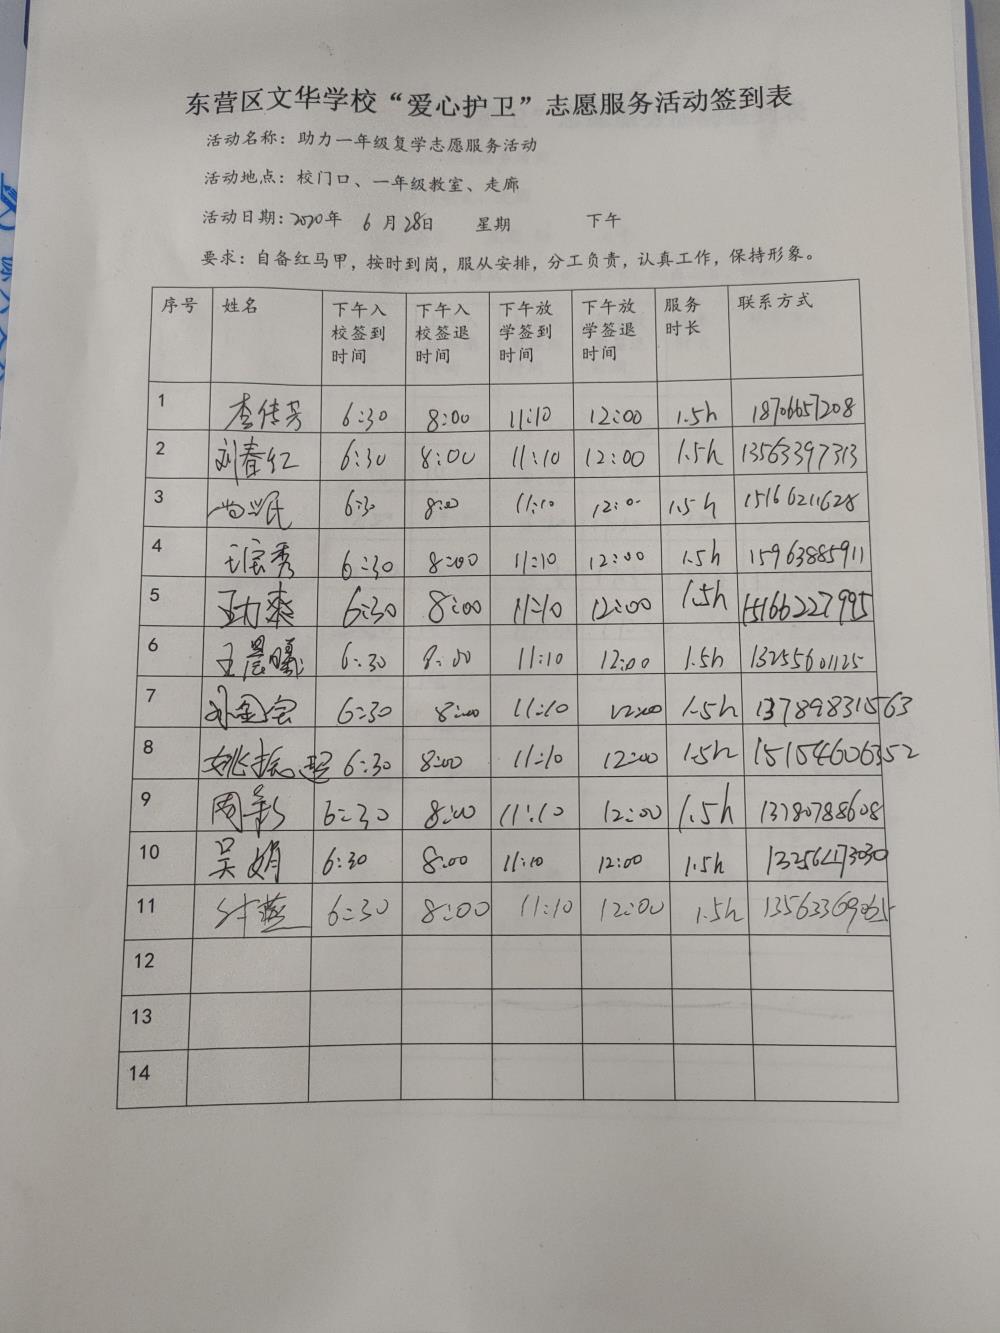 东营区文华学校“爱心护卫”志愿服务活动签到表
活动名称：助力一年级复学志愿服务活动
活动地点：校门口、一年级教室、走廊
活动日期：2020年 6月28日 星期 下午
要求：自备红马甲，按时到岗，服从安排，分工负责，认真工作，保持形象。
序号 姓名 下午入校签到时间 下午入校签退时间 下午放学签到时间 下午放学签退时间 服务时长 联系方式
1 李传芳 6:30 8:00 11:10 12:00 1.5h 18706657208
2 刘春红 6:30 8:00 11:10 12:00 1.5h 13563397313
3 6:30 8:00 11:10 12:00 1.5h 15166211628
4 6:30 8:00 11:10 12:00 1.5h 15963885911
5 6:30 8:00 11:10 12:00 1.5h 15166227995
6 王晨曦 6:30 8:00 11:10 12:00 1.5h 13255601125
7 6:30 8:00 11:10 12:00 1.5h
8 姚振超 6:30 8:00 11:10 12:00 1.5h 15154606352
9 周彩 6:30 8:00 11:10 12:00 1.5h 13780788608
10 吴娟 6:30 8:00 11:10 12:00 1.5h 13256473030
11 6:30 8:00 11:10 12:00 1.5h
12
13
14